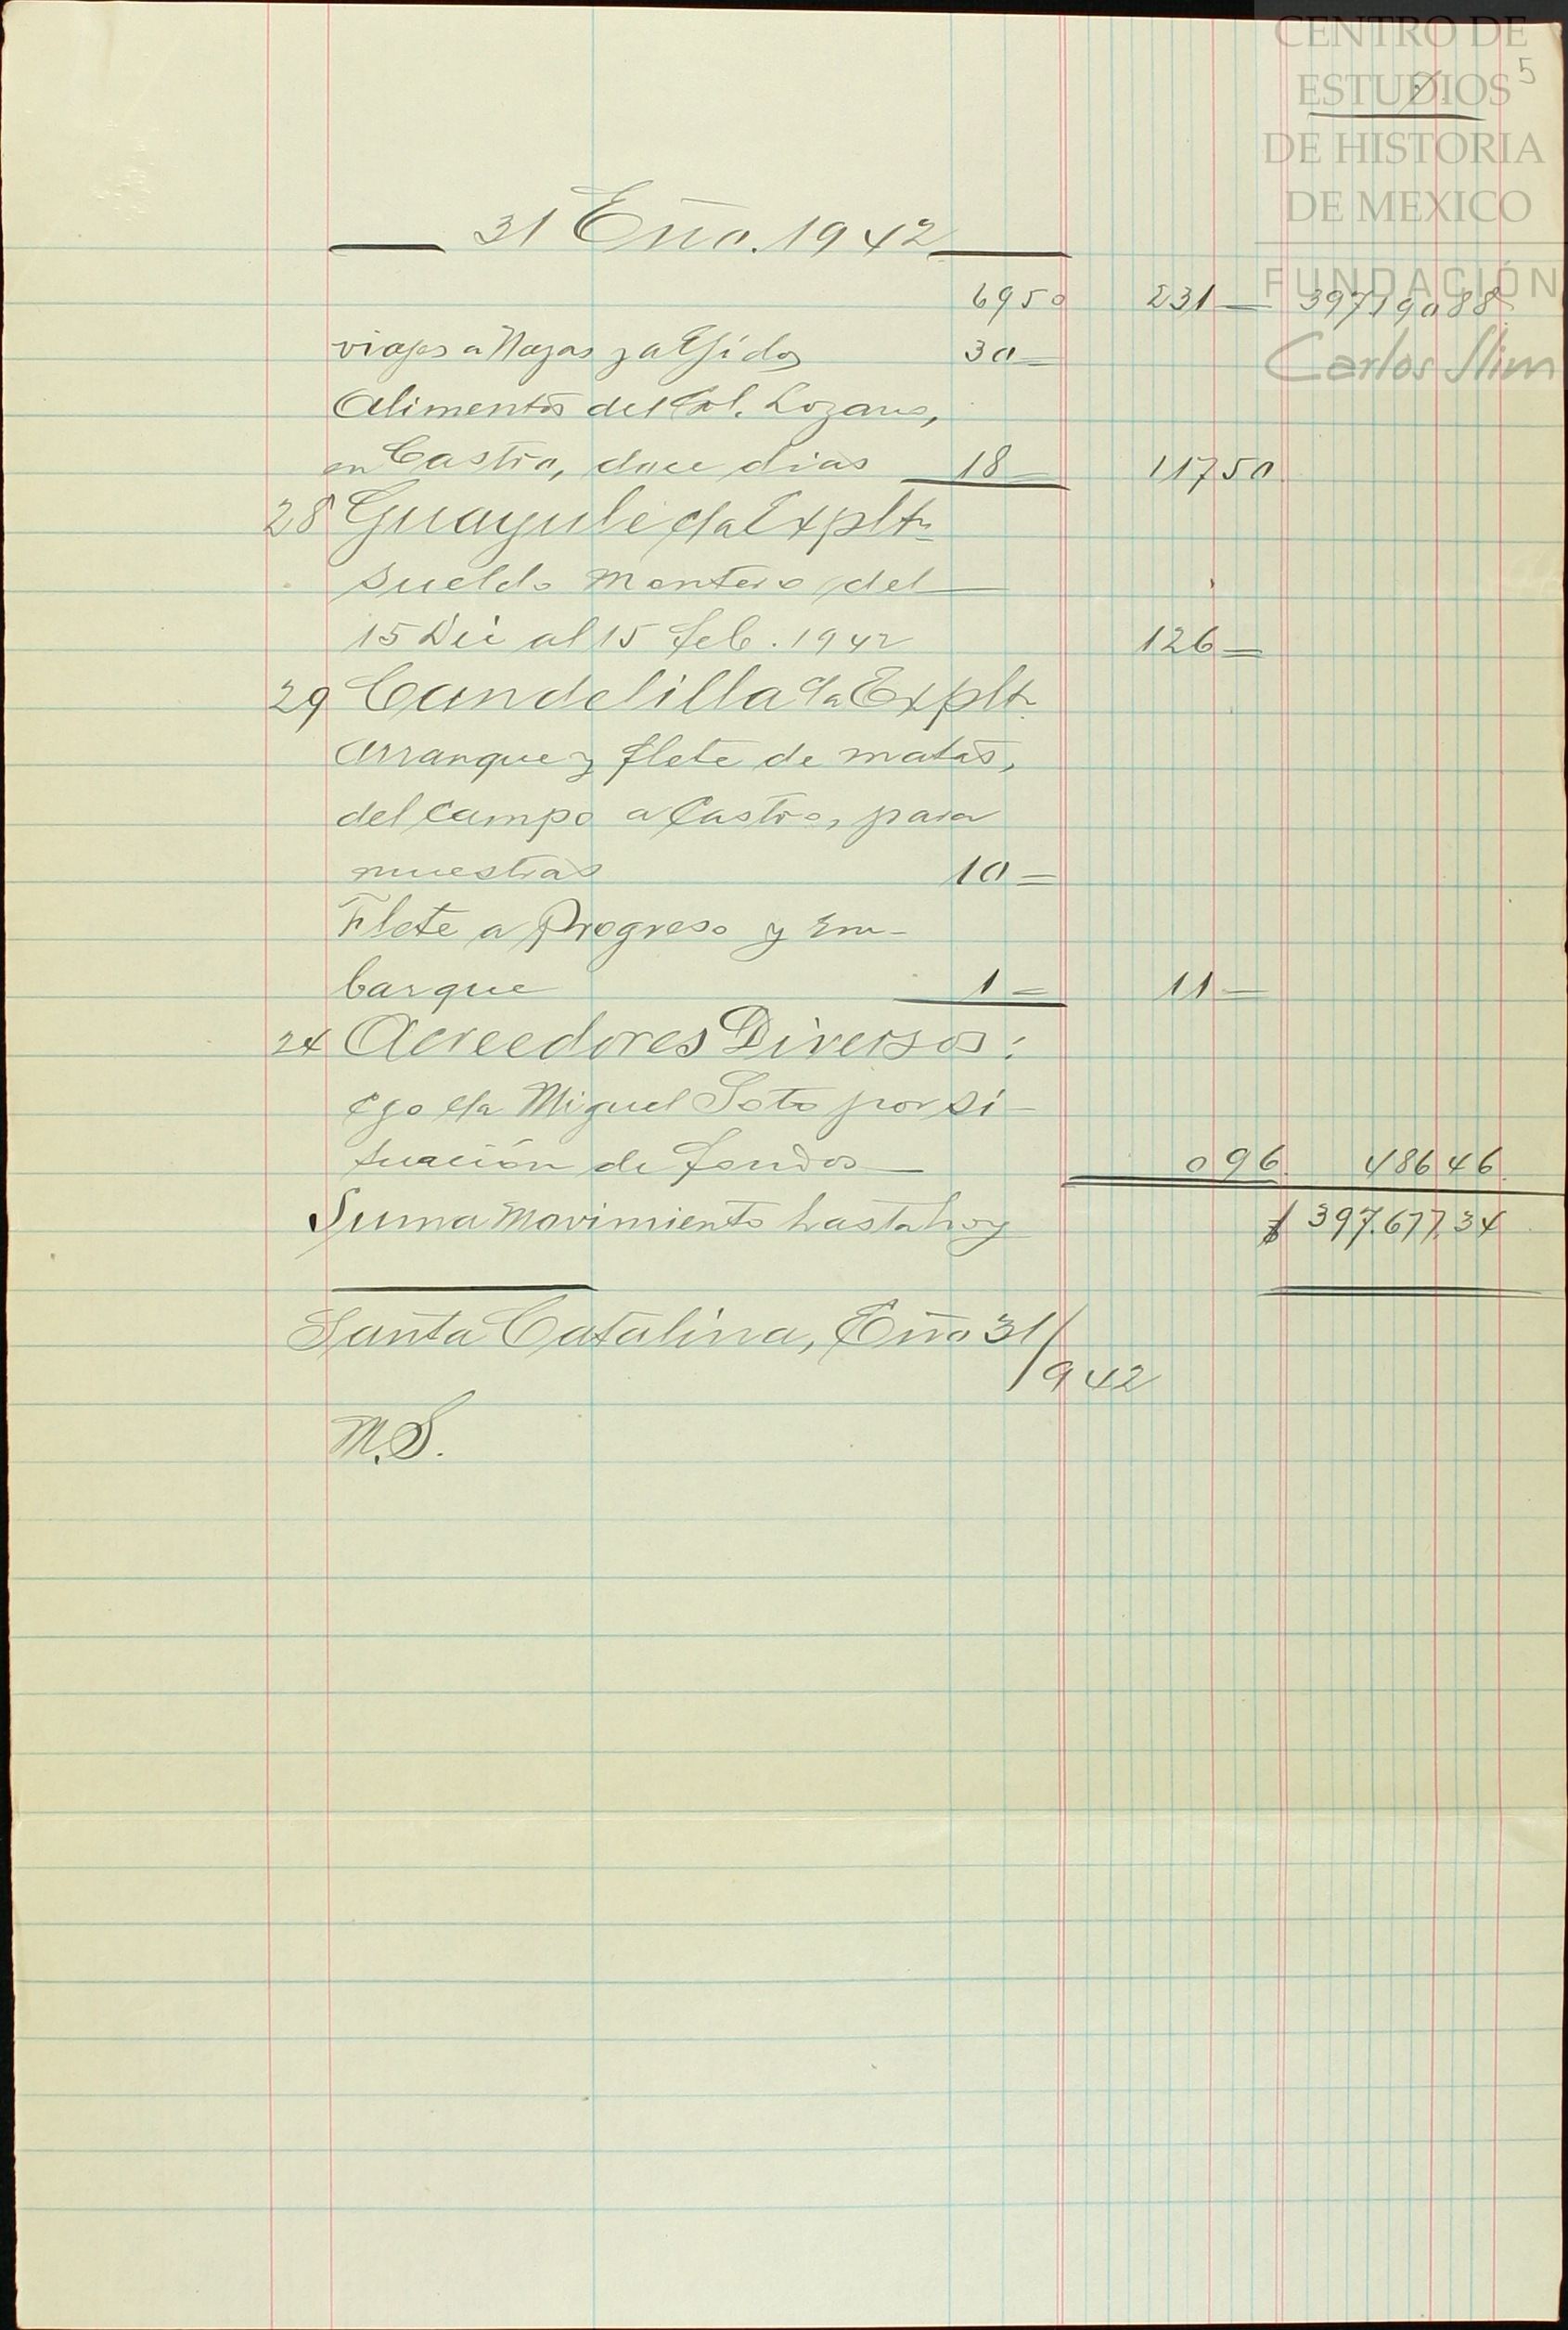 CENTRO DE
ESTUDIOS 5
DE HISTORIA
DE MEXICO
FUNDACIÓN
Carlos Slim
31 Eño. 1942
69 50 231 = 397190 88
viajes a Nazas y a Ejidos 30 =
Alimentos del Col. Lozano,
en Castro, doce dias 18 = 117 50
28 Guayule cta Expltn
sueldo Montero del
15 Dic al 15 Feb. 1942 126 =
29 Candelilla cta Expltn
Arranque y flete de matas,
del campo a Castro, para
muestras 10 =
Flete a Progreso y Em-
barque 1 = 11 =
24 Acreedores Diversos:
Cgo cta Miguel Soto por si-
tuación de fondos 0 96 486 46
Suma Movimiento hasta hoy $ 397.677.34
Santa Catalina, Eño 31/
942
M.S.